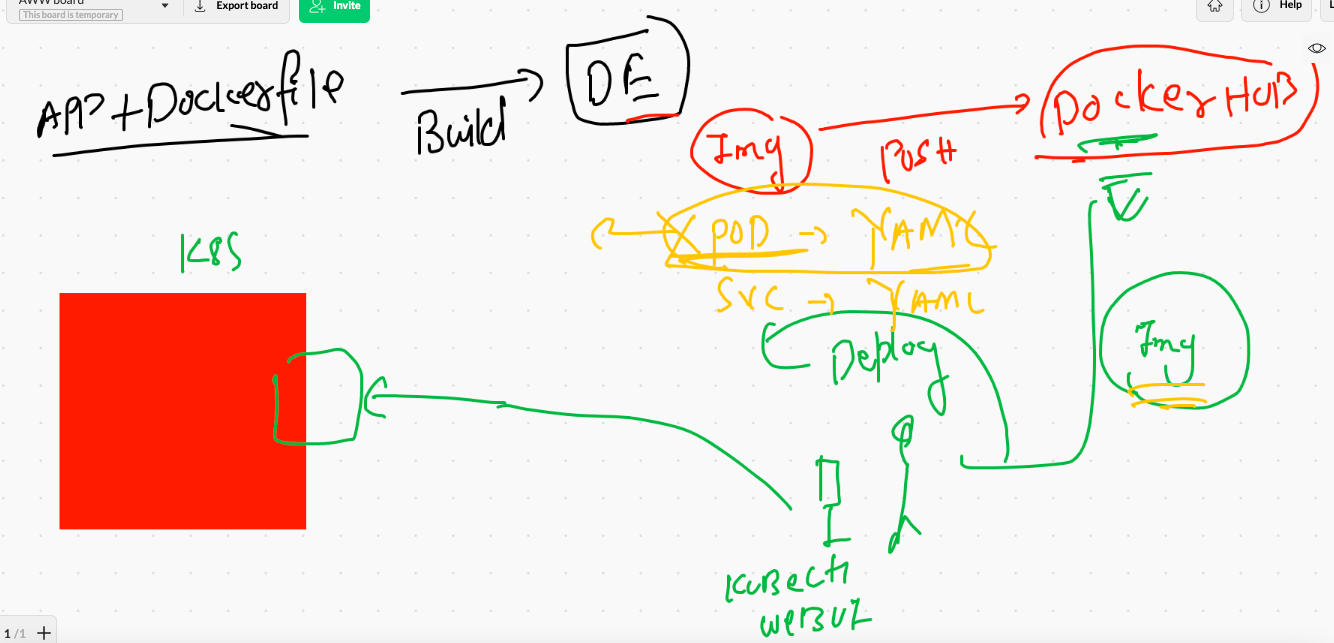 AWW board
This board is temporary
Export board
Invite
Help
APP + Dockerfile
Build
DE
Img
PUSH
DockerHUB
K8S
POD -> YAML
SVC -> YAML
Deploy
Img
KUBECtl
WEBUI
1/1 +